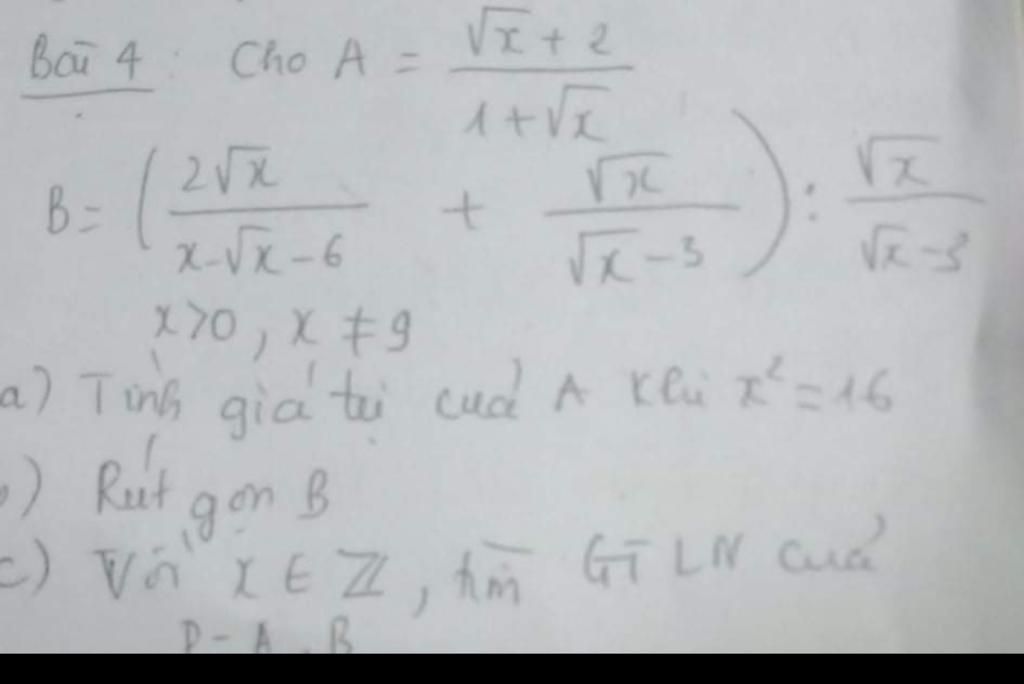 Bài 4: Cho A = (√x + 2)/(1 + √x)
B = (2√x/(x - √x - 6) + √x/(√x - 3)) : √x/(√x - 3)
x > 0, x ≠ 9
a) Tính giá trị của A khi x² = 16
b) Rút gọn B
c) Với x ∈ Z, tìm GTLN của
P = A . B